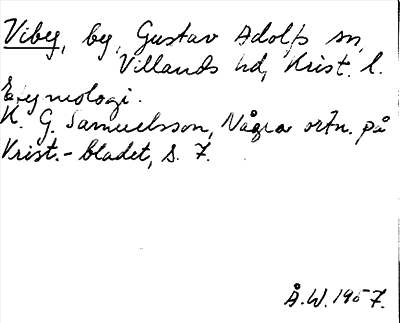 Vibey, by, Gustav Adolfs sn,
Villands hd, Krist. l.
Etymologi.
K. G. Samuelsson, Några ortn. på
Krist.-bladet, s. 7.
Å.W. 1957.